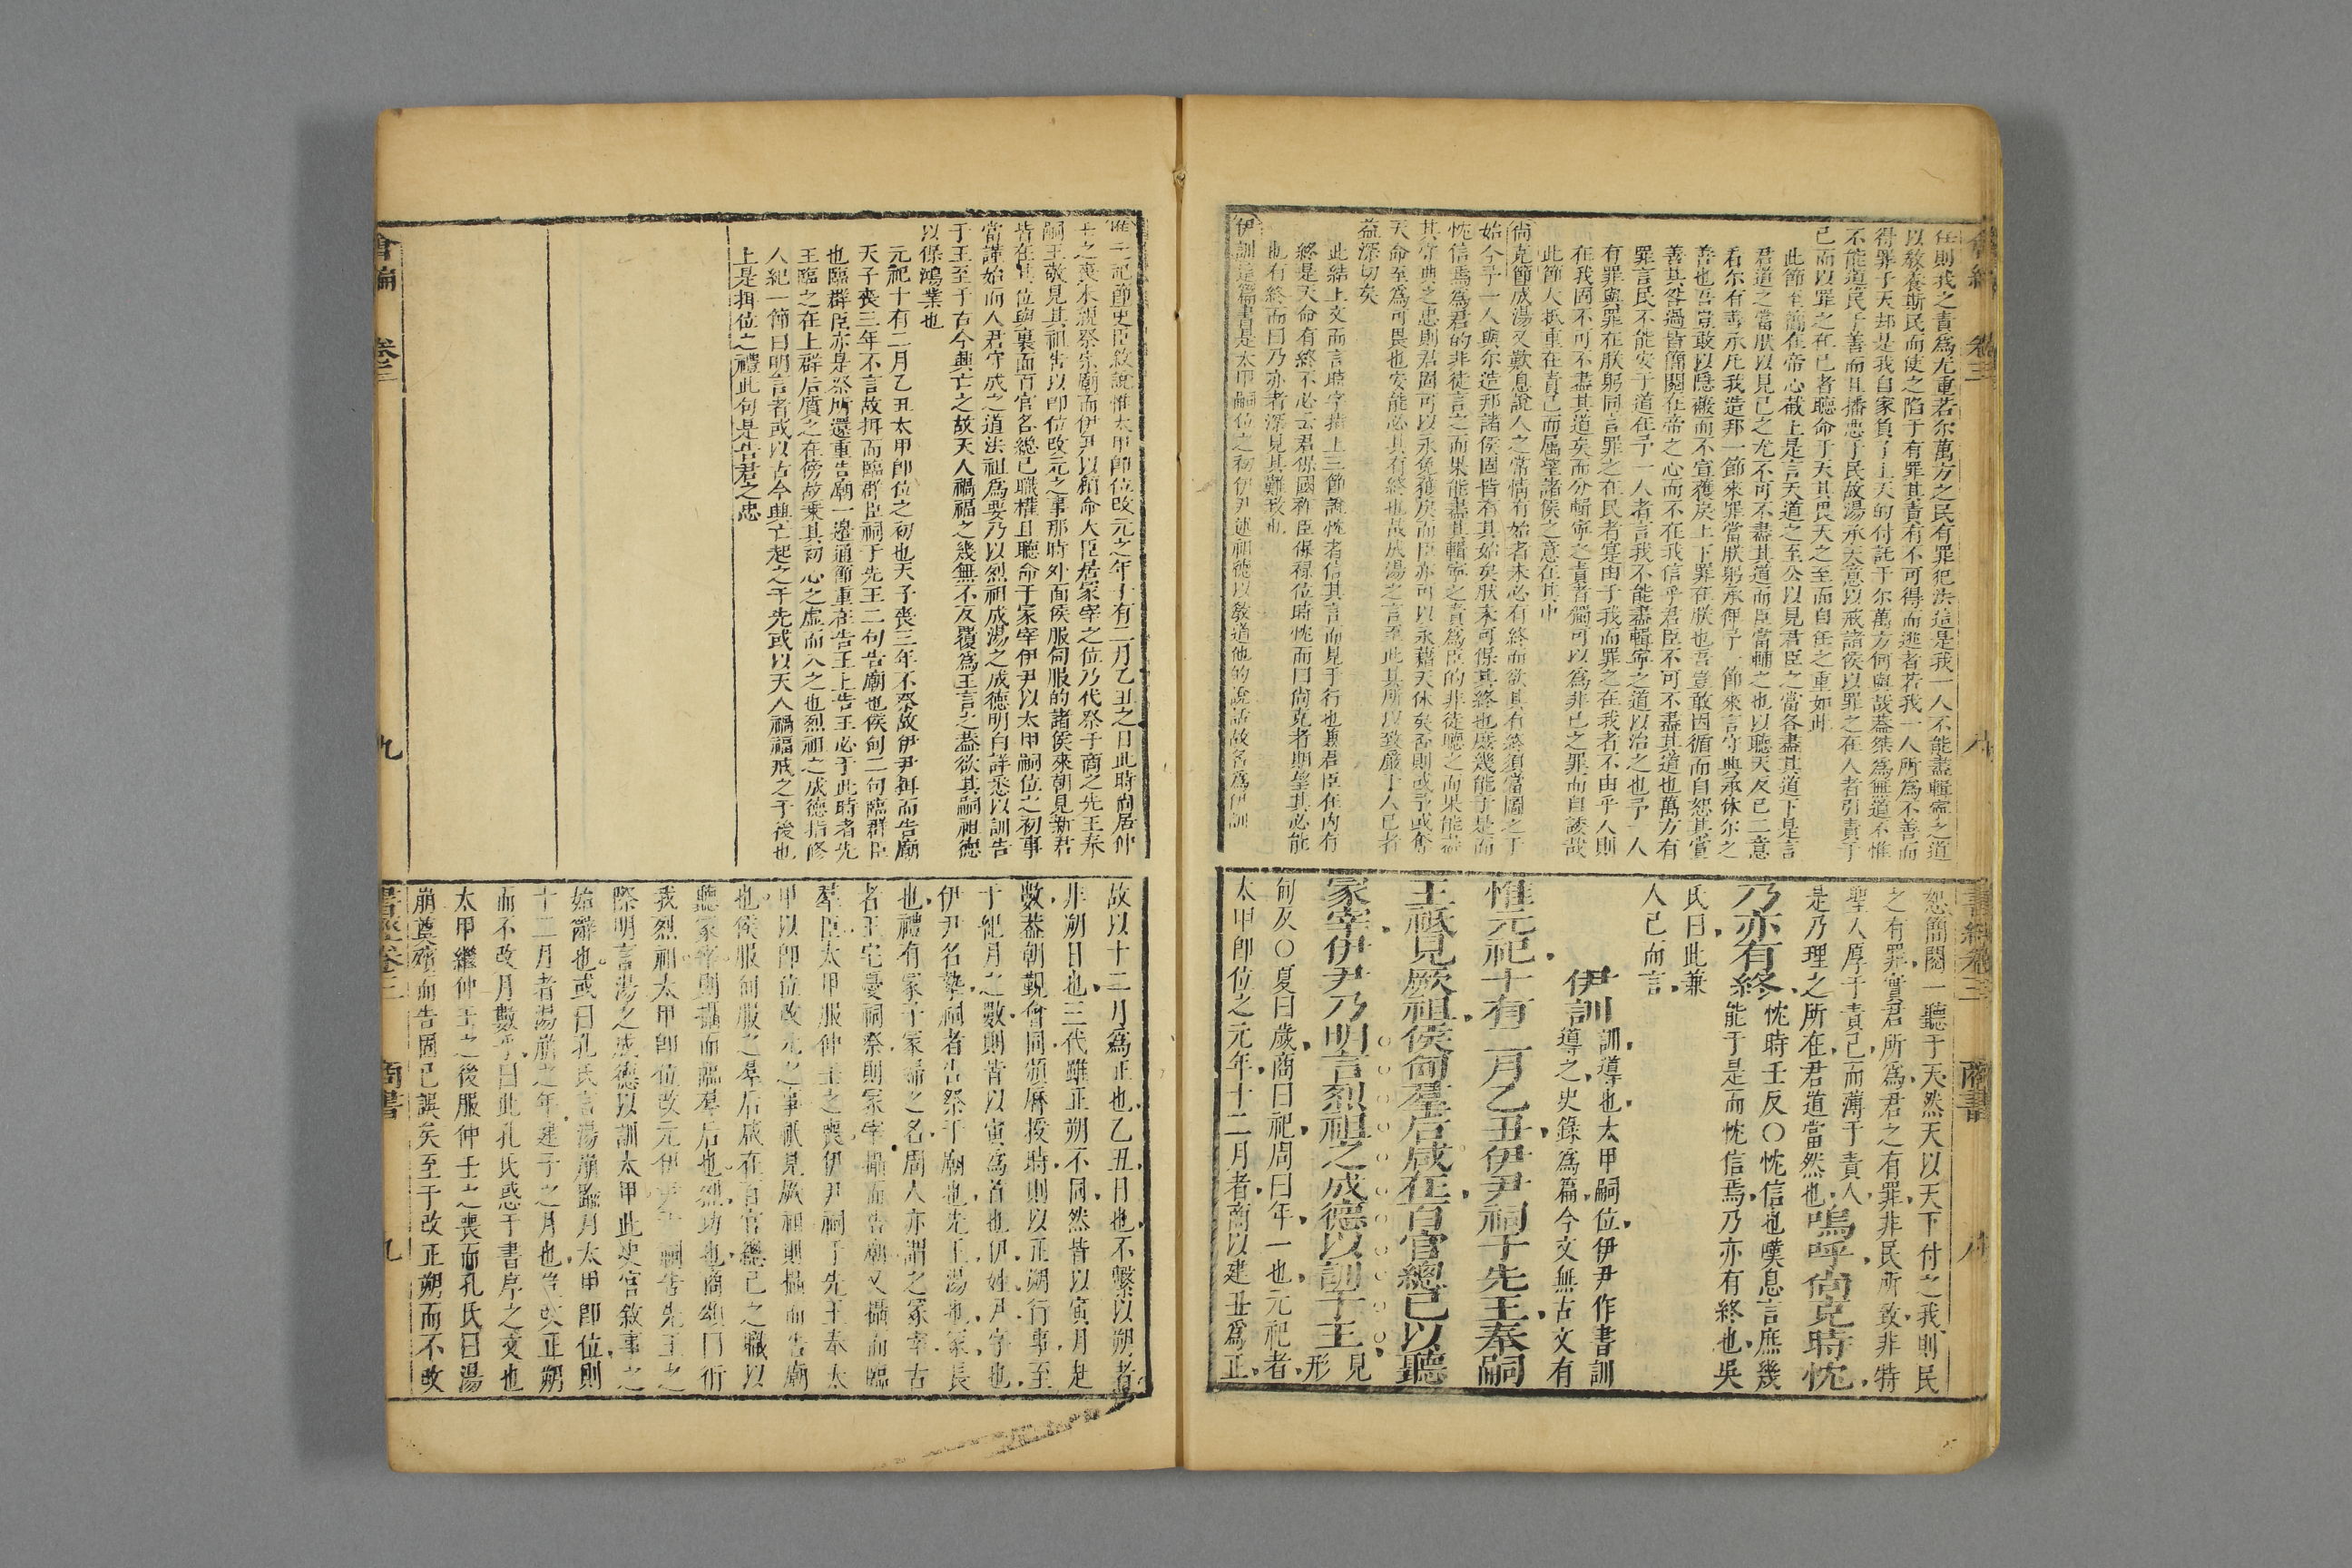 任則我之責爲尤重若尔萬方之民有罪犯法這是我一人不能盡輯寧之道
以敎養斯民而使之陷于有罪其責有不可得而逃者若我一人所爲不善而
得罪于天却是我自家負了上天的付託于尔萬方何與哉葢桀爲無道不惟
不能道民于善而且播惡于民故湯承天意以戒諸侯以罪之在人者引責于
己而以罪之在己者聽命于天其畏天之至而自任之重如此
此節至簡在帝心截上是言天道之至公以見君臣之當各盡其道下是言
君道之當朕以見己之尤不可不盡其道而臣當輔之也以聽天反己二意
看尔有善承凡我造邦一節來罪當朕躬承俾予一節來言守典承休尔之
善也吾豈敢以隐蔽而不宣獲戾上下罪在朕也吾豈敢因循而自恕其實
善其咎過皆簡閱在帝之心而不在我信乎君臣不可不盡其道也萬方有
罪言民不能安于道在予一人者言我不能盡輯寧之道以治之也予一人
有罪與罪在朕躬同言罪之在民者寔由于我而罪之在我者不由乎人則
在我固不可不盡其道矣而分輯寧之責者獨可以爲非己之罪而自諉哉
此節大抵重在責己而属望諸侯之意在其中
尙克節成湯又歎息說人之常情有始者未必有終而欲其有終須當圖之于
始今予一人與尔造邦諸侯固皆有其始矣狀未可保其終也庶幾能于是而
忱信焉爲君的非徒言之而果能盡其輯寧之責爲臣的非徒聽之而果能盡
其守典之忠則君固可以永保獲戾而臣亦可以永藉天休矣否則或予或奪
天命至爲可畏也安能必其有終也哉成湯之言至此其所以致嚴于人己者
益深切矣
此結上文而言時字指上三節說忱者信其言而見于行也兼君臣在內有
終是天命有終不必云君保國祚臣保禄位時忱而曰尙克者期望其必能
也有終而曰乃亦者深見其難致也
伊訓這篇書是太甲嗣位之初伊尹述祖德以敎道他的說話故名爲伊訓
恕簡閱一聽于天然天以天下付之我則民
之有罪實君所爲君之有罪非民所致非特
聖人厚于責己而薄于責人
是乃理之所在君道當然也嗚呼尙克時忱
乃亦有終忱時壬反○忱信也嘆息言庶幾
能于是而忱信焉乃亦有終也吳
氏曰此兼
人己而言
伊訓訓導也太甲嗣位伊尹作書訓
導之史錄爲篇今文無古文有
惟元祀十有二月乙丑伊尹祠于先王奉嗣
王祗見厥祖侯甸羣后咸在百官總己以聽
冢宰伊尹乃明言烈祖之成德以訓于王見
形
甸反○夏曰歲商曰祀周曰年一也元祀者
太甲卽位之元年十二月者商以建丑爲正
會編 卷三 八
書經卷三 商書 八
惟元祀節史臣敘說惟太甲卽位改元之年十有二月乙丑之日此時尙居仲
壬之喪未親祭宗廟而伊尹以顧命大臣居冢宰之位乃代祭于商之先王奉
嗣王敬見其祖告以卽位改元之事那時外面侯服甸服的諸侯來朝見新君
皆在其位與裏面百官各總己職權且聽命于冢宰伊尹以太甲嗣位之初事
當謹始而人君守成之道法祖爲要乃以烈祖成湯之成德明白詳悉以訓告
于王至于古今興亡之故天人禍福之幾無不反覆爲王言之葢欲其嗣祖德
以保鴻業也
元祀十有二月乙丑太甲卽位之初也天子喪三年不祭故伊尹攝而告廟
天子喪三年不言故攝而臨群臣祠于先王二句告廟也侯甸二句臨群臣
也臨群臣亦是祭所還重告廟一邊通節重在告王上告王必于此時者先
王臨之在上群后質之在傍故乘其初心之虛而入之也烈祖之成德指修
人紀一節曰明言者或以古今興亡起之于先或以天人禍福戒之于後也
上是攝位之禮此句是告君之忠
故以十二月爲正也乙丑日也不繫以朔者
非朔日也三代雖正朔不同然皆以寅月起
數葢朝覲會同頒曆授時則以正朔行事至
于紀月之數則皆以寅爲首也伊姓尹字也
伊尹名摯祠者告祭于廟也先王湯也冢長
也禮有冢子冢婦之名周人亦謂之冢宰古
者王宅憂祠祭則冢宰攝而告廟又攝而臨
羣臣太甲服仲壬之喪伊尹祠于先王奉太
甲以卽位改元之事祗見厥祖則攝而告廟
也侯服甸服之羣后咸在百官總己之職以
聽冢宰則攝而臨羣后也烈功也商頌曰衎
我烈祖太甲卽位改元伊尹于祠告先王之
際明言湯之成德以訓太甲此史官敘事之
始辭也或曰孔氏言湯崩踰月太甲卽位則
十二月者湯崩之年建子之月也豈改正朔
而不改月數乎曰此孔氏惑于書序之文也
太甲繼仲壬之後服仲壬之喪而孔氏曰湯
崩奠殯而告固已誤矣至于改正朔而不改
會編 卷三 九
書經卷三 商書 九